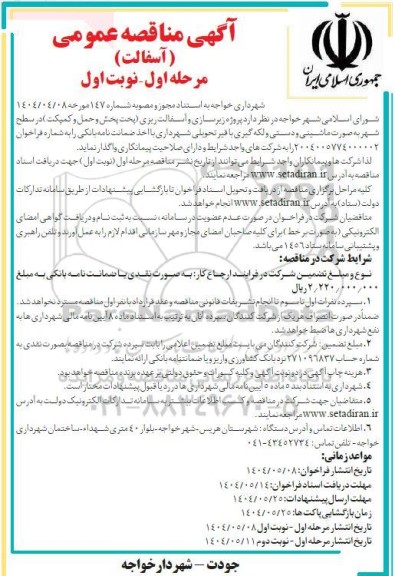 آگهی مناقصه عمومی
(آسفالت)
مرحله اول - نوبت اول
جمهوری اسلامی ایران
شهرداری خواجه به استناد مجوز و مصوبه شماره ۱۴۷ مورخه ۱۴۰۴/۰۴/۰۸
شورای اسلامی شهر خواجه در نظر دارد پروژه زیرسازی و آسفالت ریزی (پخت پخش و حمل و کمپکت) در سطح
شهر به صورت ماشینی و دستی و لکه گیری با قیر تحویلی شهرداری با اخذ ضمانت نامه بانکی را به شماره فراخوان
۲۰۰۴۰۰۵۷۷۴۰۰۰۰۰۲ را به شرکت های واجد شرایط و دارای صلاحیت پیمانکاری واگذار نماید.
لذا شرکت ها و پیمانکاران واجد شرایط می توانند از تاریخ نشر مناقصه مرحله اول (نوبت اول) جهت دریافت اسناد
مناقصه به آدرس www.setadiran.ir مراجعه نمایند.
کلیه مراحل برگزاری مناقصه از دریافت و تحویل اسناد فراخوان تا بازگشایی پیشنهادات از طریق سامانه تدارکات
دولت (ستاد) به آدرس www.setadiran.ir انجام خواهد شد.
متقاضیان شرکت در فراخوان در صورت عدم عضویت در سامانه، نسبت به ثبت نام و دریافت گواهی امضای
الکترونیکی (به صورت برخط) برای کلیه صاحبان امضای مجاز و مهر سازمانی اقدام لازم را به عمل آورند و تلفن راهبری
و پشتیبانی سامانه ستاد ۱۴۵۶ می باشد.
شرایط شرکت در مناقصه:
نوع و مبلغ تضمین شرکت در فرایند ارجاع کار: به صورت نقدی یا ضمانت نامه بانکی به مبلغ
۲/۲۲۰/۰۰۰/۰۰۰ ریال
۱. سپرده نفرات اول تا سوم تا انجام تشریفات قانونی مناقصه و عقد قرارداد با نفر اول مناقصه مسترد نخواهد شد.
ضمنا در صورت انصراف هریک از شرکت کنندگان سپرده آنان به ترتیب به استناد ماده ۸ آیین نامه مالی شهرداری ها به
نفع شهرداری ها ضبط خواهد شد.
۲. مبلغ تضمین: شرکت کنندگان می بایست مبلغ تضمین اعلامی را بابت سپرده شرکت در مناقصه بصورت نقدی به
شماره حساب ۲۷۱۰۹۶۸۳۷ نزد بانک کشاورزی واریز و یا ضمانتنامه بانکی ارائه نمایند.
۳. هزینه چاپ آگهی در دو نوبت آگهی و کلیه کسورات و حقوق دولتی بر عهده برنده مناقصه خواهد بود.
۴. شهرداری به استناد بند ۵ ماده ۵ آیین نامه مالی شهرداری ها در رد یا قبول پیشنهادات مختار است.
۵. متقاضیان جهت شرکت در مناقصه و کسب اطلاعات بیشتر به سامانه تدارکات الکترونیک دولت به آدرس
www.setadiran.ir مراجعه نمایند.
۶. اطلاعات تماس و آدرس دستگاه: شهرستان هریس-شهر خواجه-بلوار ۴۰ متری شهداء-ساختمان شهرداری
خواجه - تلفن تماس: ۴۳۴۵۲۷۳۴-۰۴۱
مواعد زمانی:
تاریخ انتشار فراخوان: ۱۴۰۴/۰۵/۰۸
مهلت دریافت اسناد فراخوان: ۱۴۰۴/۰۵/۱۴
مهلت ارسال پیشنهادات: ۱۴۰۴/۰۵/۲۵
زمان بازگشایی پاکت ها: ۱۴۰۴/۰۵/۲۵
تاریخ انتشار مرحله اول - نوبت اول ۱۴۰۴/۰۵/۰۸
تاریخ انتشار مرحله اول - نوبت دوم ۱۴۰۴/۰۵/۱۱
جودت - شهردار خواجه